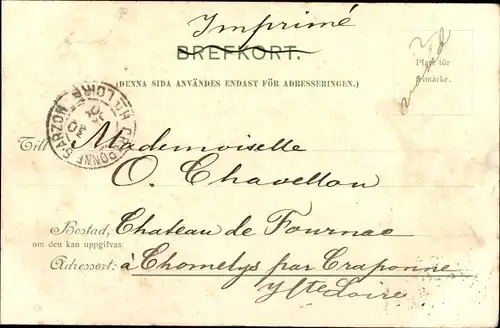 Imprimé
BREFKORT.
(DENNA SIDA ANVÄNDES ENDAST FÖR ADRESSERINGEN.)
Plats för
frimärke.
Till Mademoiselle
O. Chavellon
Bostad, Chateau de Fournac
om den kan uppgifvas:
Adressort: à Chomelys par Craponne
Hte Loire